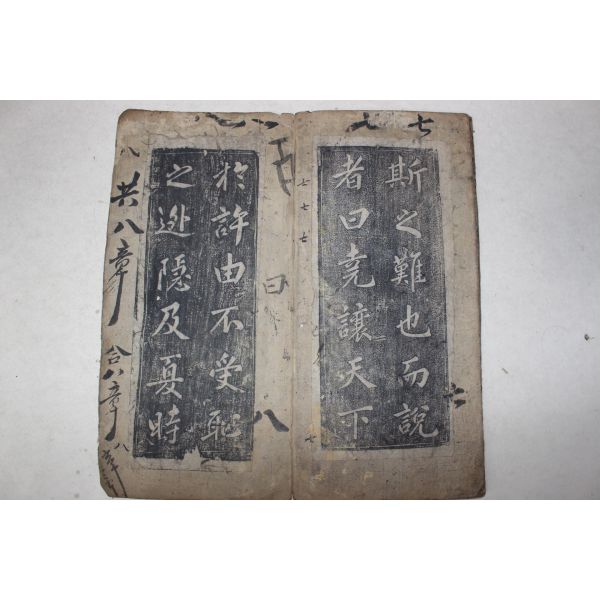 斯之難也而說
者曰堯讓天下
於許由不受恥
之逃隱及夏時
共八章
合八章
七
七七七
曰
八
八